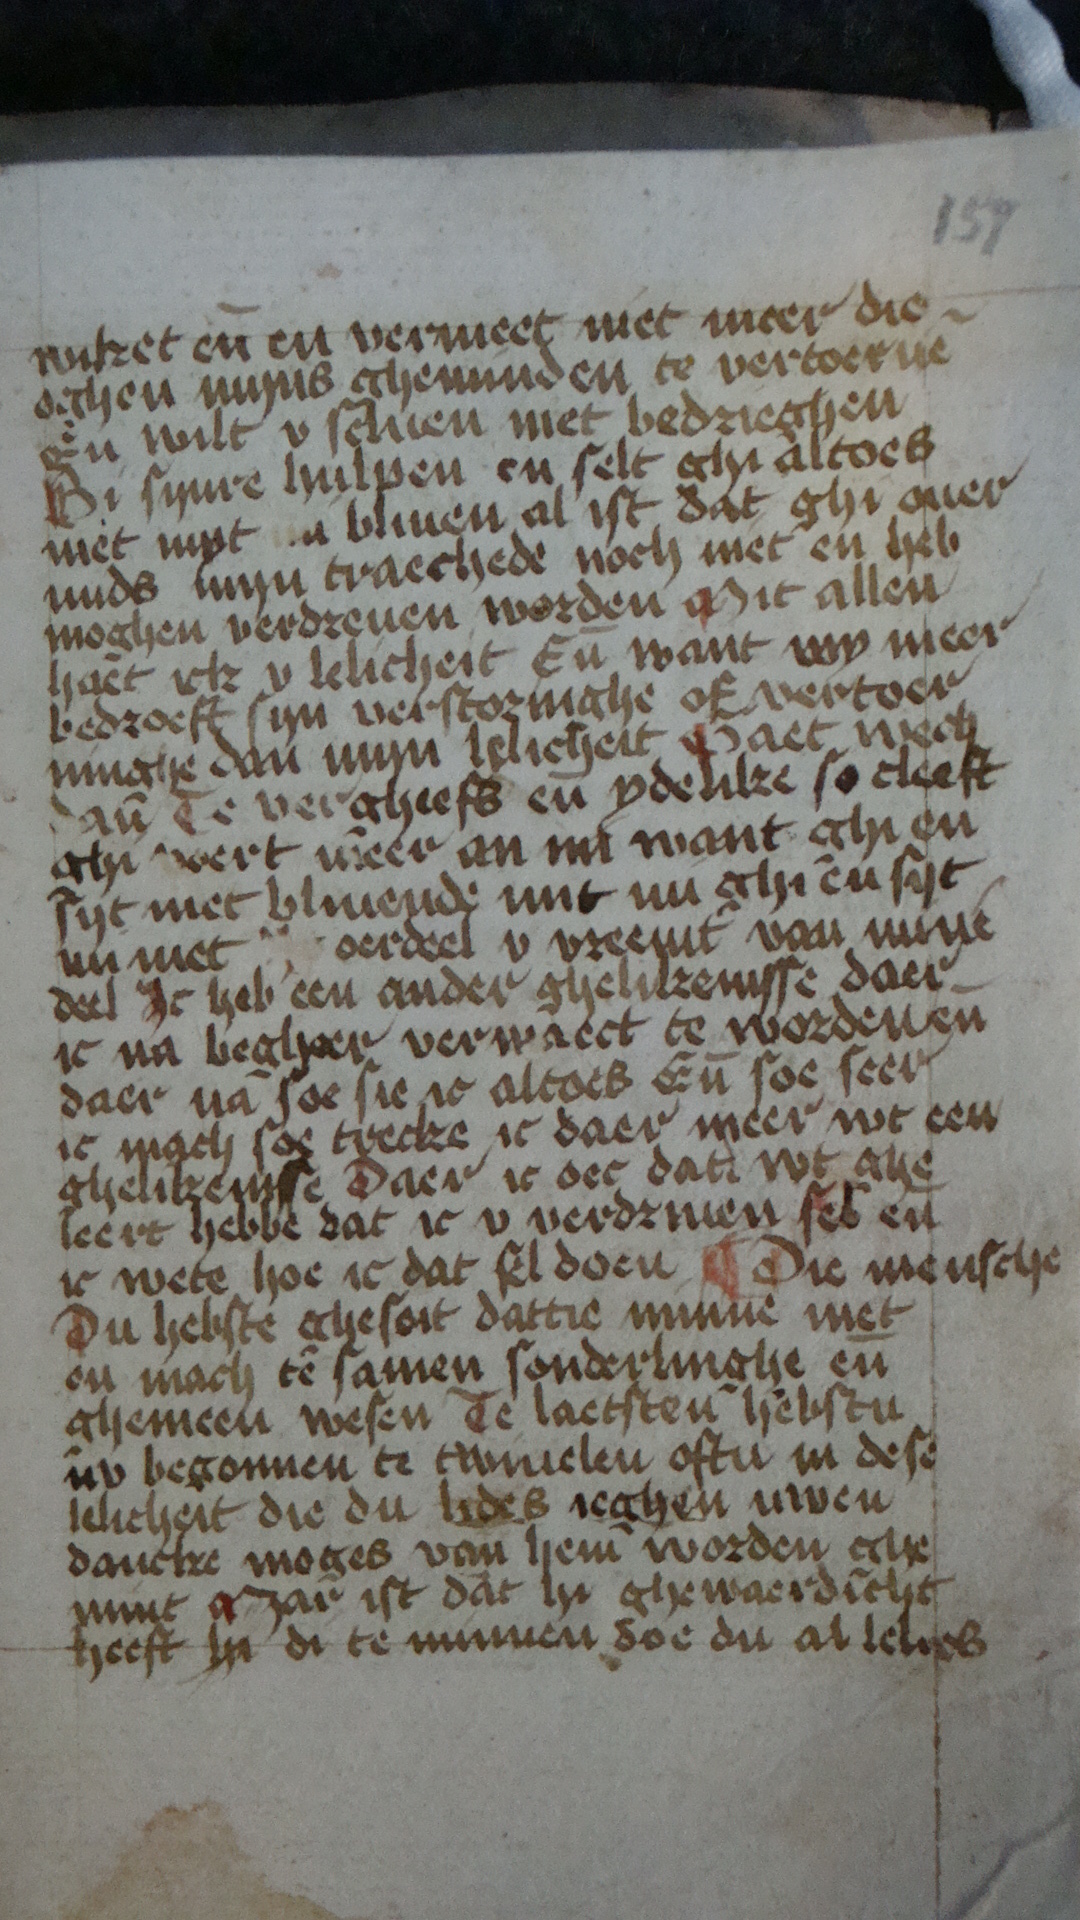 157
wiket eñ en vermeet niet meer die
oghen mijns gheminden te vertoernē
En wilt v schuen niet bedrieghen
Bi sijnre hulpen en selt ghi altoes
niet myt bliuen al ist dat ghi ouer
mids mijn traechede noch niet en heb
moghen verdreuen worden Mit allen
haet ick v lelicheit Eñ want my meer
bedroeft sijn verstoringhe of vertoer
ninghe dan mijn lelicheit Gaet wech
dañ Te vergheefs eñ ydelike so cleeft
ghi voert meer an mi want ghi en
sijt niet bliuende mit mi ghi en sijt
mi niet oerdeel v vreemt van mine
deel Ic heb een ander ghelikenisse daer
ic na begheer verwaect te worden eñ
daer na soe sie ic altoes Eñ soe seer
ic mach soe trecke ic daer meer wt een
ghelikenisse Daer ic oec dat wt ghe
leert hebbe dat ic v verdriuen sel eñ
ic wete hoe ic dat sel doen Die mensche
Du hebste gheseit dattie minne niet
en mach te samen sonderlinghe eñ
ghemeen wesen Te laetsten hebstu
nv begonnen te twiuelen oftu in dese
lelicheit die du lides ieghen uwen
dancke moges van hem worden ghe
mint Mar ist dat hi ghewaerdicht
heeft hi di te minnen doe du al lelics